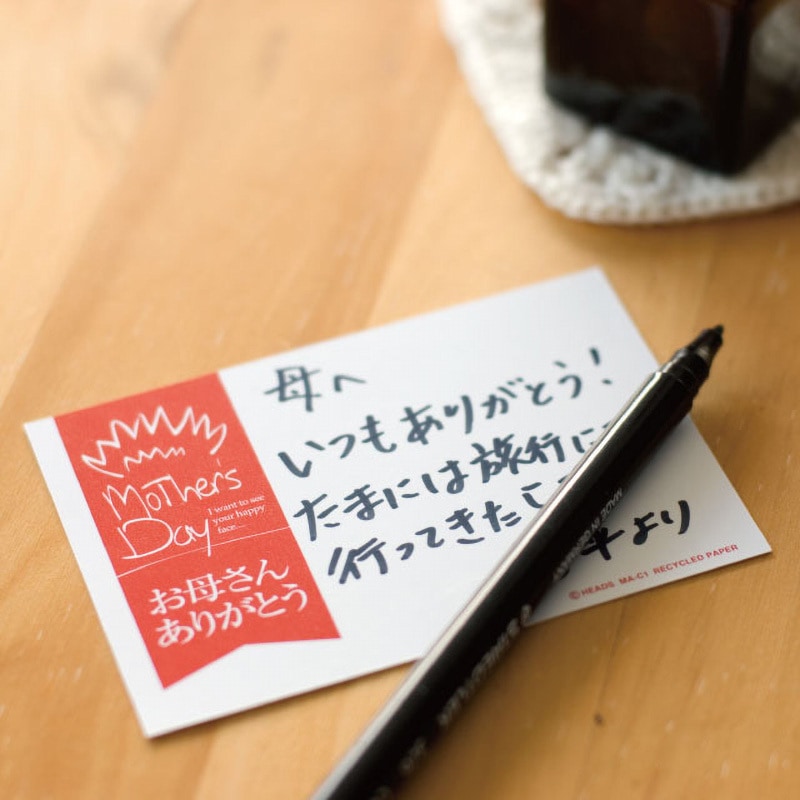 母へ
いつもありがとう!
たまには旅行に
行ってきたし
より
Mother's
Day
I want to see
your happy
face...
お母さん
ありがとう
©HEADS MA-C1 RECYCLED PAPER
MADE IN GERMANY